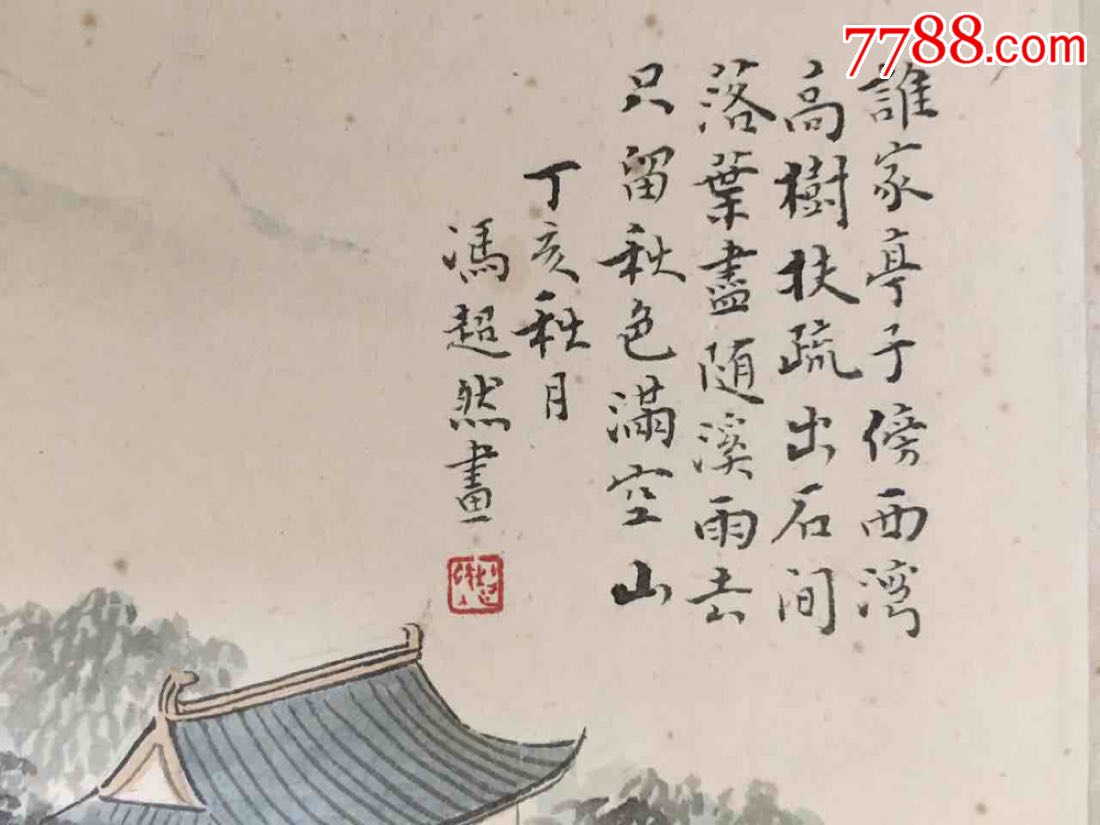 7788.com
誰家亭子傍西湾
高樹扶疏出石间
落葉盡随溪雨去
只留秋色滿空山
丁亥秋月
馮超然畫